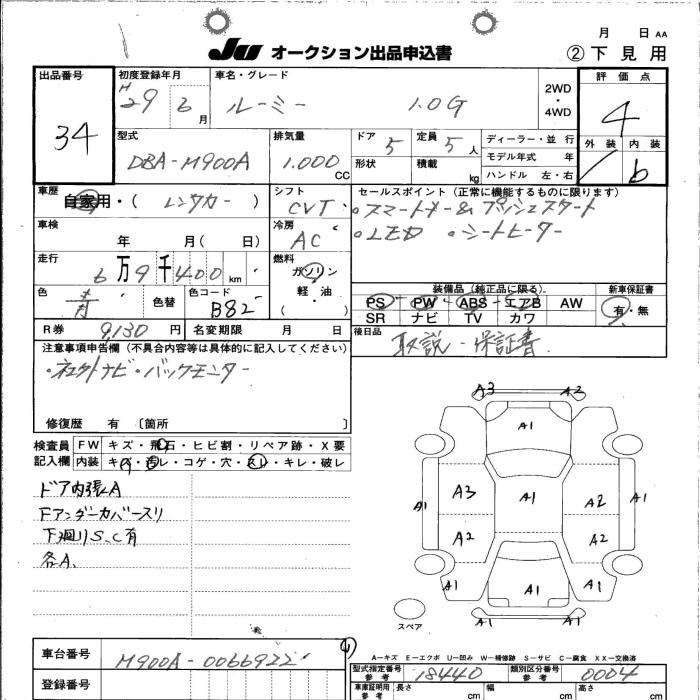 月 日 AA
JU オークション出品申込書 ②下見用
出品番号 初度登録年月 車名・グレード 2WD ・ 4WD 評価点
34 H29 6月 ルーミー 1.0G 4
型式 排気量 ドア 5 定員 5人 ディーラー・並行 外装 内装
DBA-M900A 1.000 CC 形状 積載 kg モデル年式 年 b
ハンドル 左・右
車歴 シフト セールスポイント(正常に機能するものに限ります)
自家用・( レンタカー ) CVT ・スマートキー&プッシュスタート
車検 冷房 ・LED ・シートヒーター
年 月( 日) AC
走行 燃料
6万9千400km ガソリン
軽・油
( )
色 青 色替 色コード B82 装備品(純正品に限る) 新車保証書
PS PW ABS エアB AW 有・無
SR ナビ TV カワ
R券 9,130円 名変期限 月 日 後日品
取説・保証書
注意事項申告欄(不具合内容等は具体的に記入してください)
・ネクストナビ・バックモニター
修復歴 有 〔箇所 〕
検査員 FW キズ・飛石・ヒビ割・リペア跡・X要
記入欄 内装 キズ・汚レ・コゲ・穴・スレ・キレ・破レ
ドア内張A
Fアンダーカバースリ
下廻りS、C有
各A、
A3 A2
A1
A1 A3 A1 A2 A1
A2 A2
A1 A1 A1
A1 A1
スペア
A−キズ E−エクボ U−凹み W−補修跡 S−サビ C−腐食 XX−交換済
車台番号 M900A-0066922
型式指定番号 参考 18440 類別区分番号 参考 0004
登録番号
車庫証明用 参考 長さ cm 幅 cm 高さ cm